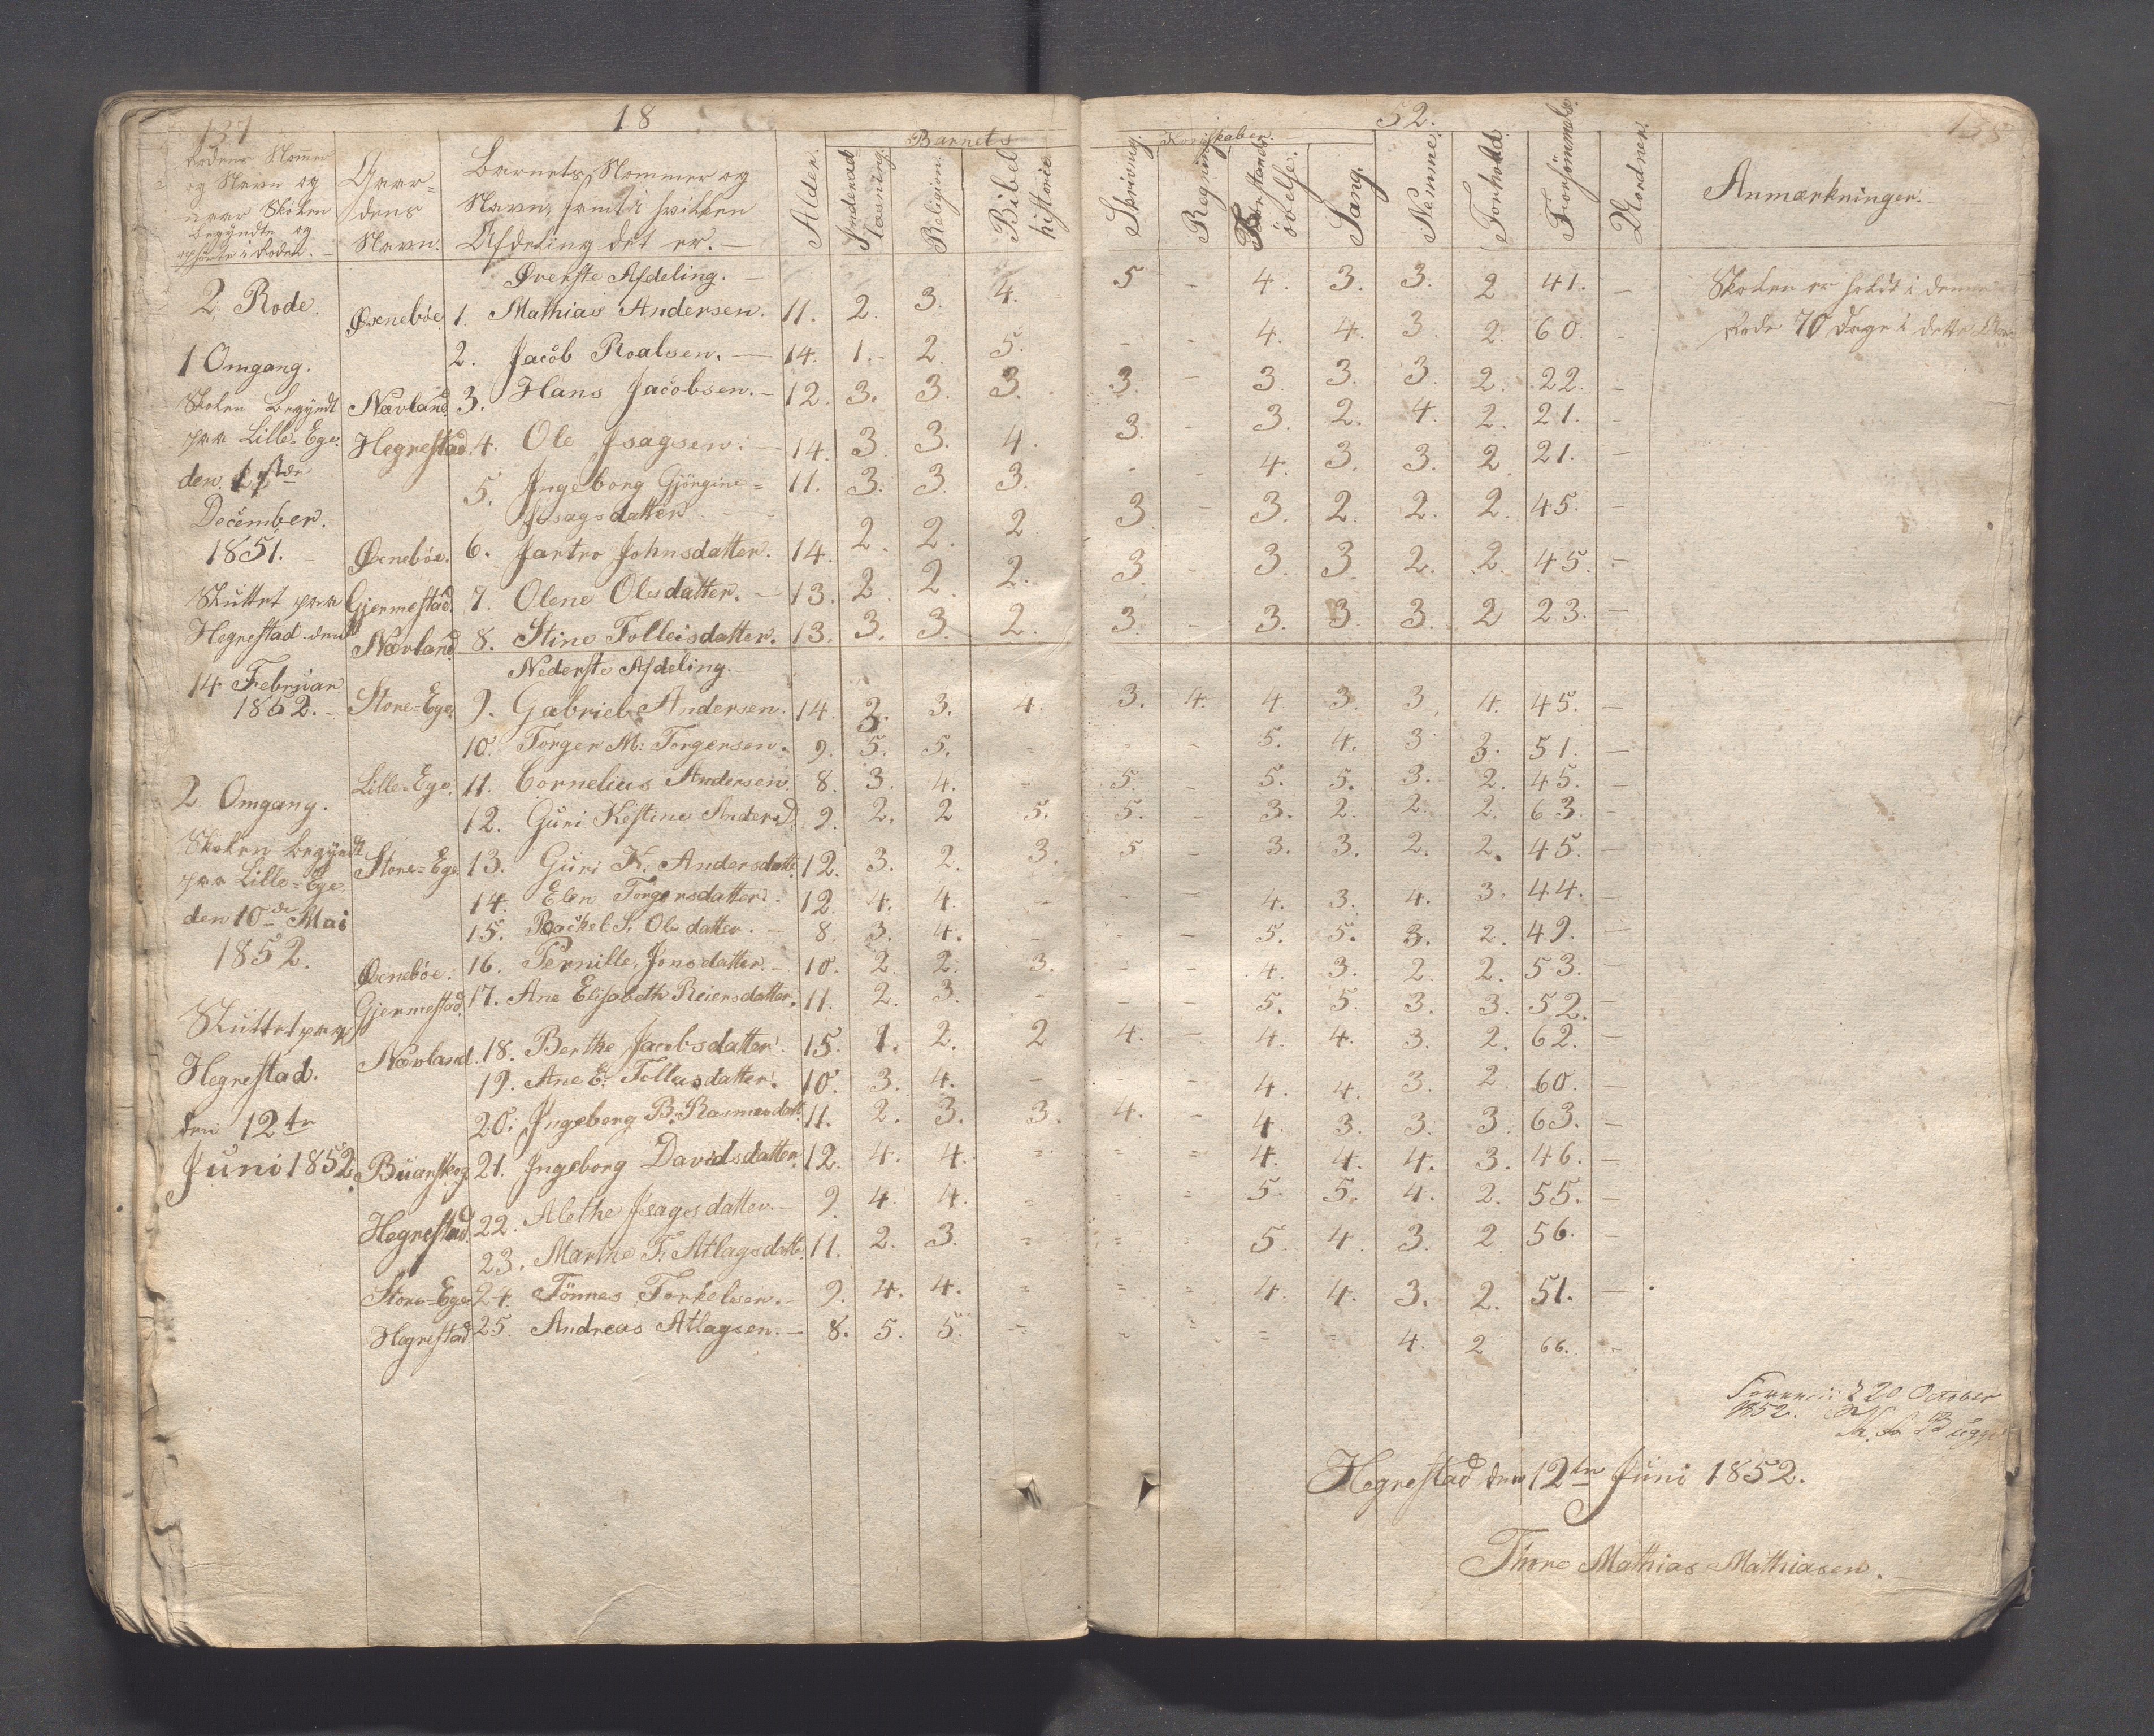 18 52.
Barnets Kundskaber.
Rodens Nommer og Navn og naar Skolen begyndte og ophörte i Roden. –
Gaardens Navn.
Barnets Nommer og Navn, samt i hvilken Afdeling det er. –
Alder.
Religion.
Bibelhistorie
Skrivning.
Regning
Forstands övelse.
Sang.
Nemme.
Forhold.
Forsömmelse.
Anmærkninger.
Øverste Afdeling. –
2 Rode. Øxnebøe 1. Mathias Andersen. 11. 2. 3. 4. 5 - 4. 3. 3. 2 41. –
Skolen er holdt i denne
Rode 70 Dage i dette Aar
1 Omgang. 2. Jacob Roalsen. – 14. 1. 2. 5. - - 4. 4. 3. 2. 60. -
Skolen begyndt Nævland 3. Hans Jacobsen. – 12. 3. 3. 3. 3. – 3. 3. 3. 2. 22. –
paa Lille-Ege. Hegrestad. 4. Ole Isagsen. – 14. 3. 3. 4. 3. - 3. 2. 4. 2. 21. -
den 1ste 5. Ingeborg Gjörgine= 11. 3. 3. 3. - - 4. 3. 3. 2. 21. –
December. Isagsdatter
1851. – Øxnebøe. 6. Jartro Johnsdatter. 14. 2. 2. 2 3. – 3. 2. 2. 2. 45. –
Sluttet paa Gjermestad. 7. Olene Olsdatter. – 13. 2. 2. 2. 3. - 3. 3. 2. 2. 45. –
Hegrestad den Nævland. 8. Stine Tolleisdatter. 13. 3. 3. 2. 3. – 3. 3. 3. 2 23. –
Nederste Afdeling. –
14 Februar
1852. – Store=Ege. 9. Gabriel Andersen. 14. 3. 3. 4. 3. 4. 4. 3. 3. 4. 45. –
10. Torger M: Torgersen. 9. 5. 5. - - - 5. 4. 3. 3. 51. –
2 Omgang. Lille=Ege. 11. Cornelius Andersen. 8. 3. 4. - 5. – 5. 5. 3. 2. 45. –
12. Guri Kistine Andersd. 9. 2. 2 5. 5. – 3. 2. 2. 2. 63. –
Skolen begyndt Store=Ege. 13. Guri K. Andersdatte. 12. 3. 2. 3. 5 - 3. 3. 2. 2. 45. –
paa Lille=Ege. 14. Elen Torgersdatter. 12. 4. 4. – - - 4. 3. 4. 3. 44. –
den 10de Mai 15. Rachel S. Olsdatter. – 8. 3. 4. - - – 5. 5. 3. 2. 49. –
1852. Øxnebøe. 16. Pernille Jonsdatter. – 10. 2. 2. 3. - - 4. 3. 2. 2. 53. –
Gjermestad. 17. Ane Elisabeth Reiersdatter. 11. 2. 3. - - - 5. 5. 3. 3. 52. –
Sluttet paa Nævland. 18. Berthe Jacobsdatter. 15. 1. 2. 2 4. – 4. 4. 3. 2. 62. –
Hegrestad. 19. Ane E. Tolleisdatter. 10. 3. 4. – - - 4. 4. 3. 2. 60. –
den 12te 20. Ingeborg B. Rasmusdatt. 11. 2. 3. 3. 4. – 4. 3. 3. 3. 63. –
Juni 1852. Buarskog. 21. Ingeborg Davidsdatter. 12. 4. 4. = = = 4. 4. 4. 3. 46. –
Hegrestad. 22. Alethe Isagsdatter. – 9. 4. 4. = = = 5. 5. 4. 2. 55. –
23. Marthe T. Atlagsdatt. 11. 2. 3. = = = 5. 4. 3. 2 56. –
Store=Ege. 24. Tönnes Torkelsen. – 9. 4. 4. = = = 4. 4. 3. 2. 51. –
Hegrestad 25. Andreas Atlagsen. – 8. 5. 5. = = = = = 4. 2 66. -
20 October
1852.
Bugge
Hegrestad den 12te Juni 1852.
Thore Mathias Mathiasen.